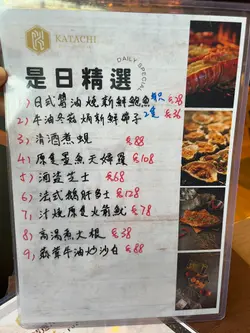 KATACHI
DAILY SPECIAL
是日精選
1) 日式醬油燒新鮮鮑魚 $38
2) 牛油冬菇焗新鮮帶子 2隻 $36
3) 清酒煮蜆 $88
4) 原隻墨魚天婦羅 $108
5) 酒盗芝士 $68
6) 法式鵝肝多士 $128
7) 汁燒原隻火箭魷 $78
8) 高湯煮大根 $38
9) 蒜蓉牛油炒沙白 $88